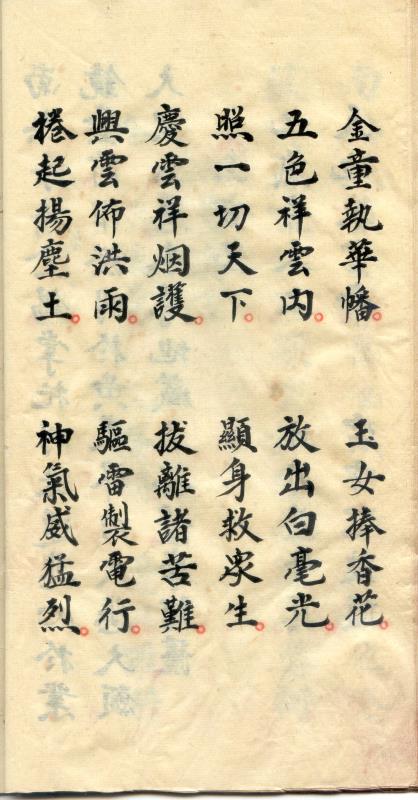 金童執華幡。玉女捧香花。
五色祥雲内。放出白毫光。
照一切天下。顯身救眾生。
慶雲祥烟護。拔離諸苦難。
興雲佈洪雨。驅雷製電行。
捲起揚塵土。神氣威猛烈。